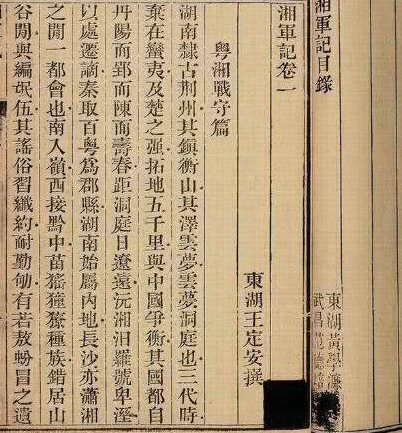 湘軍記目錄
東湖黃學
武昌
湘軍記卷一
東湖王定安撰
粵湘戰守篇
湖南隸古荆州其鎮衡山其澤雲夢雲夢洞庭也三代時
棄在蠻夷及楚之强拓地五千里與中國爭衡其國都自
丹陽而郢而陳而壽春距洞庭日遼遠沅湘汨羅號卑溼
以處遷謫秦取百粵爲郡縣湖南始屬內地長沙亦瀟湘
之閒一都會也南入嶺西接黔中苗猺獞獠種族錯居山
谷閒與編氓伍其謠俗習纖約耐勤劬有若敖蚡冒之遺